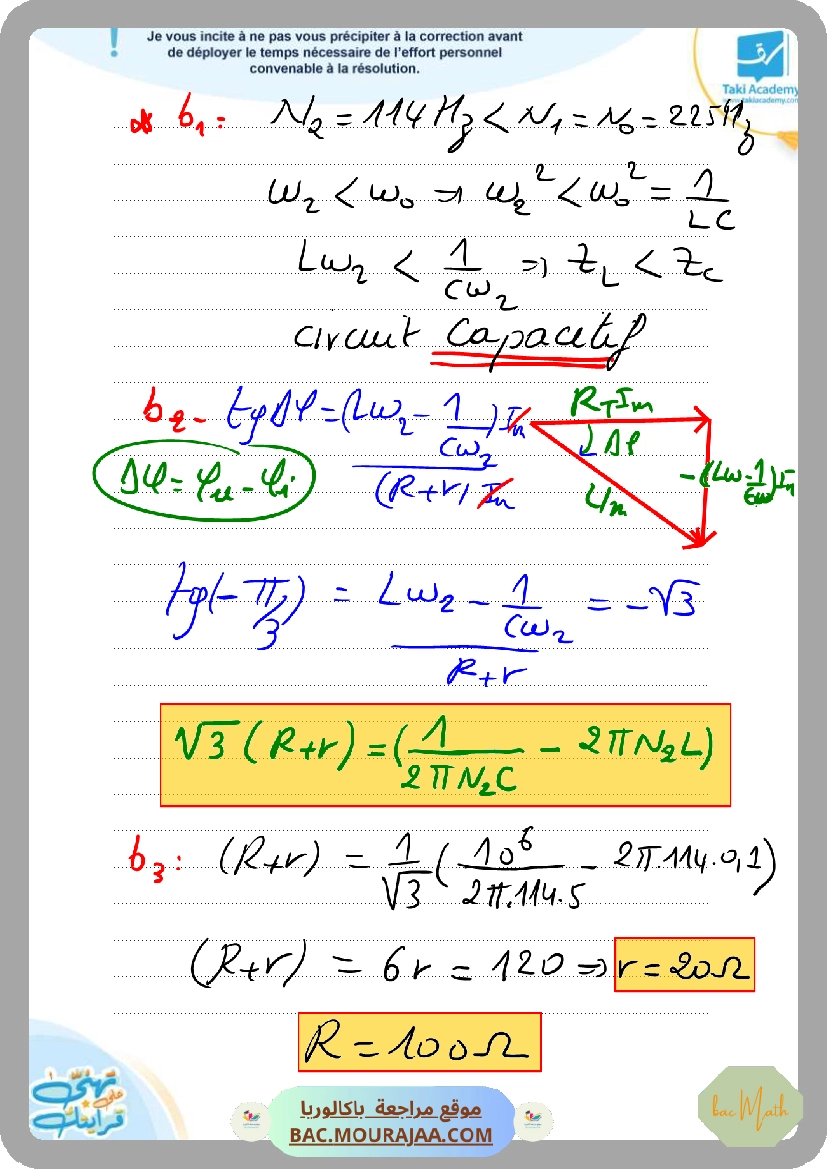 ! Je vous incite à ne pas vous précipiter à la correction avant
de déployer le temps nécessaire de l'effort personnel
convenable à la résolution.
Taki Academy
www.takiacademy.com
* b₁: N₂ = 114 Hz < N₁ = N₀ = 225 Hz
ω₂ < ω₀ ⇒ ω₂² < ω₀² = 1/LC
Lω₂ < 1/Cω₂ ⇒ Z_L < Z_C
circuit capacitif
b₂- tgΔφ = (Lω₂ - 1/Cω₂) Im / (R+r) Im
Δφ = φu - φi
R_T Im
Δφ
Um
-(Lω - 1/Cω) Im
tg(-π/3) = (Lω₂ - 1/Cω₂) / (R+r) = -√3
√3 (R+r) = (1/2πN₂C - 2πN₂L)
b₃: (R+r) = 1/√3 (10⁶/2π.114.5 - 2π.114.0,1)
(R+r) = 6r = 120 ⇒ r = 20Ω
R = 100Ω
موقع مراجعة باكالوريا
BAC.MOURAJAA.COM
bac Math